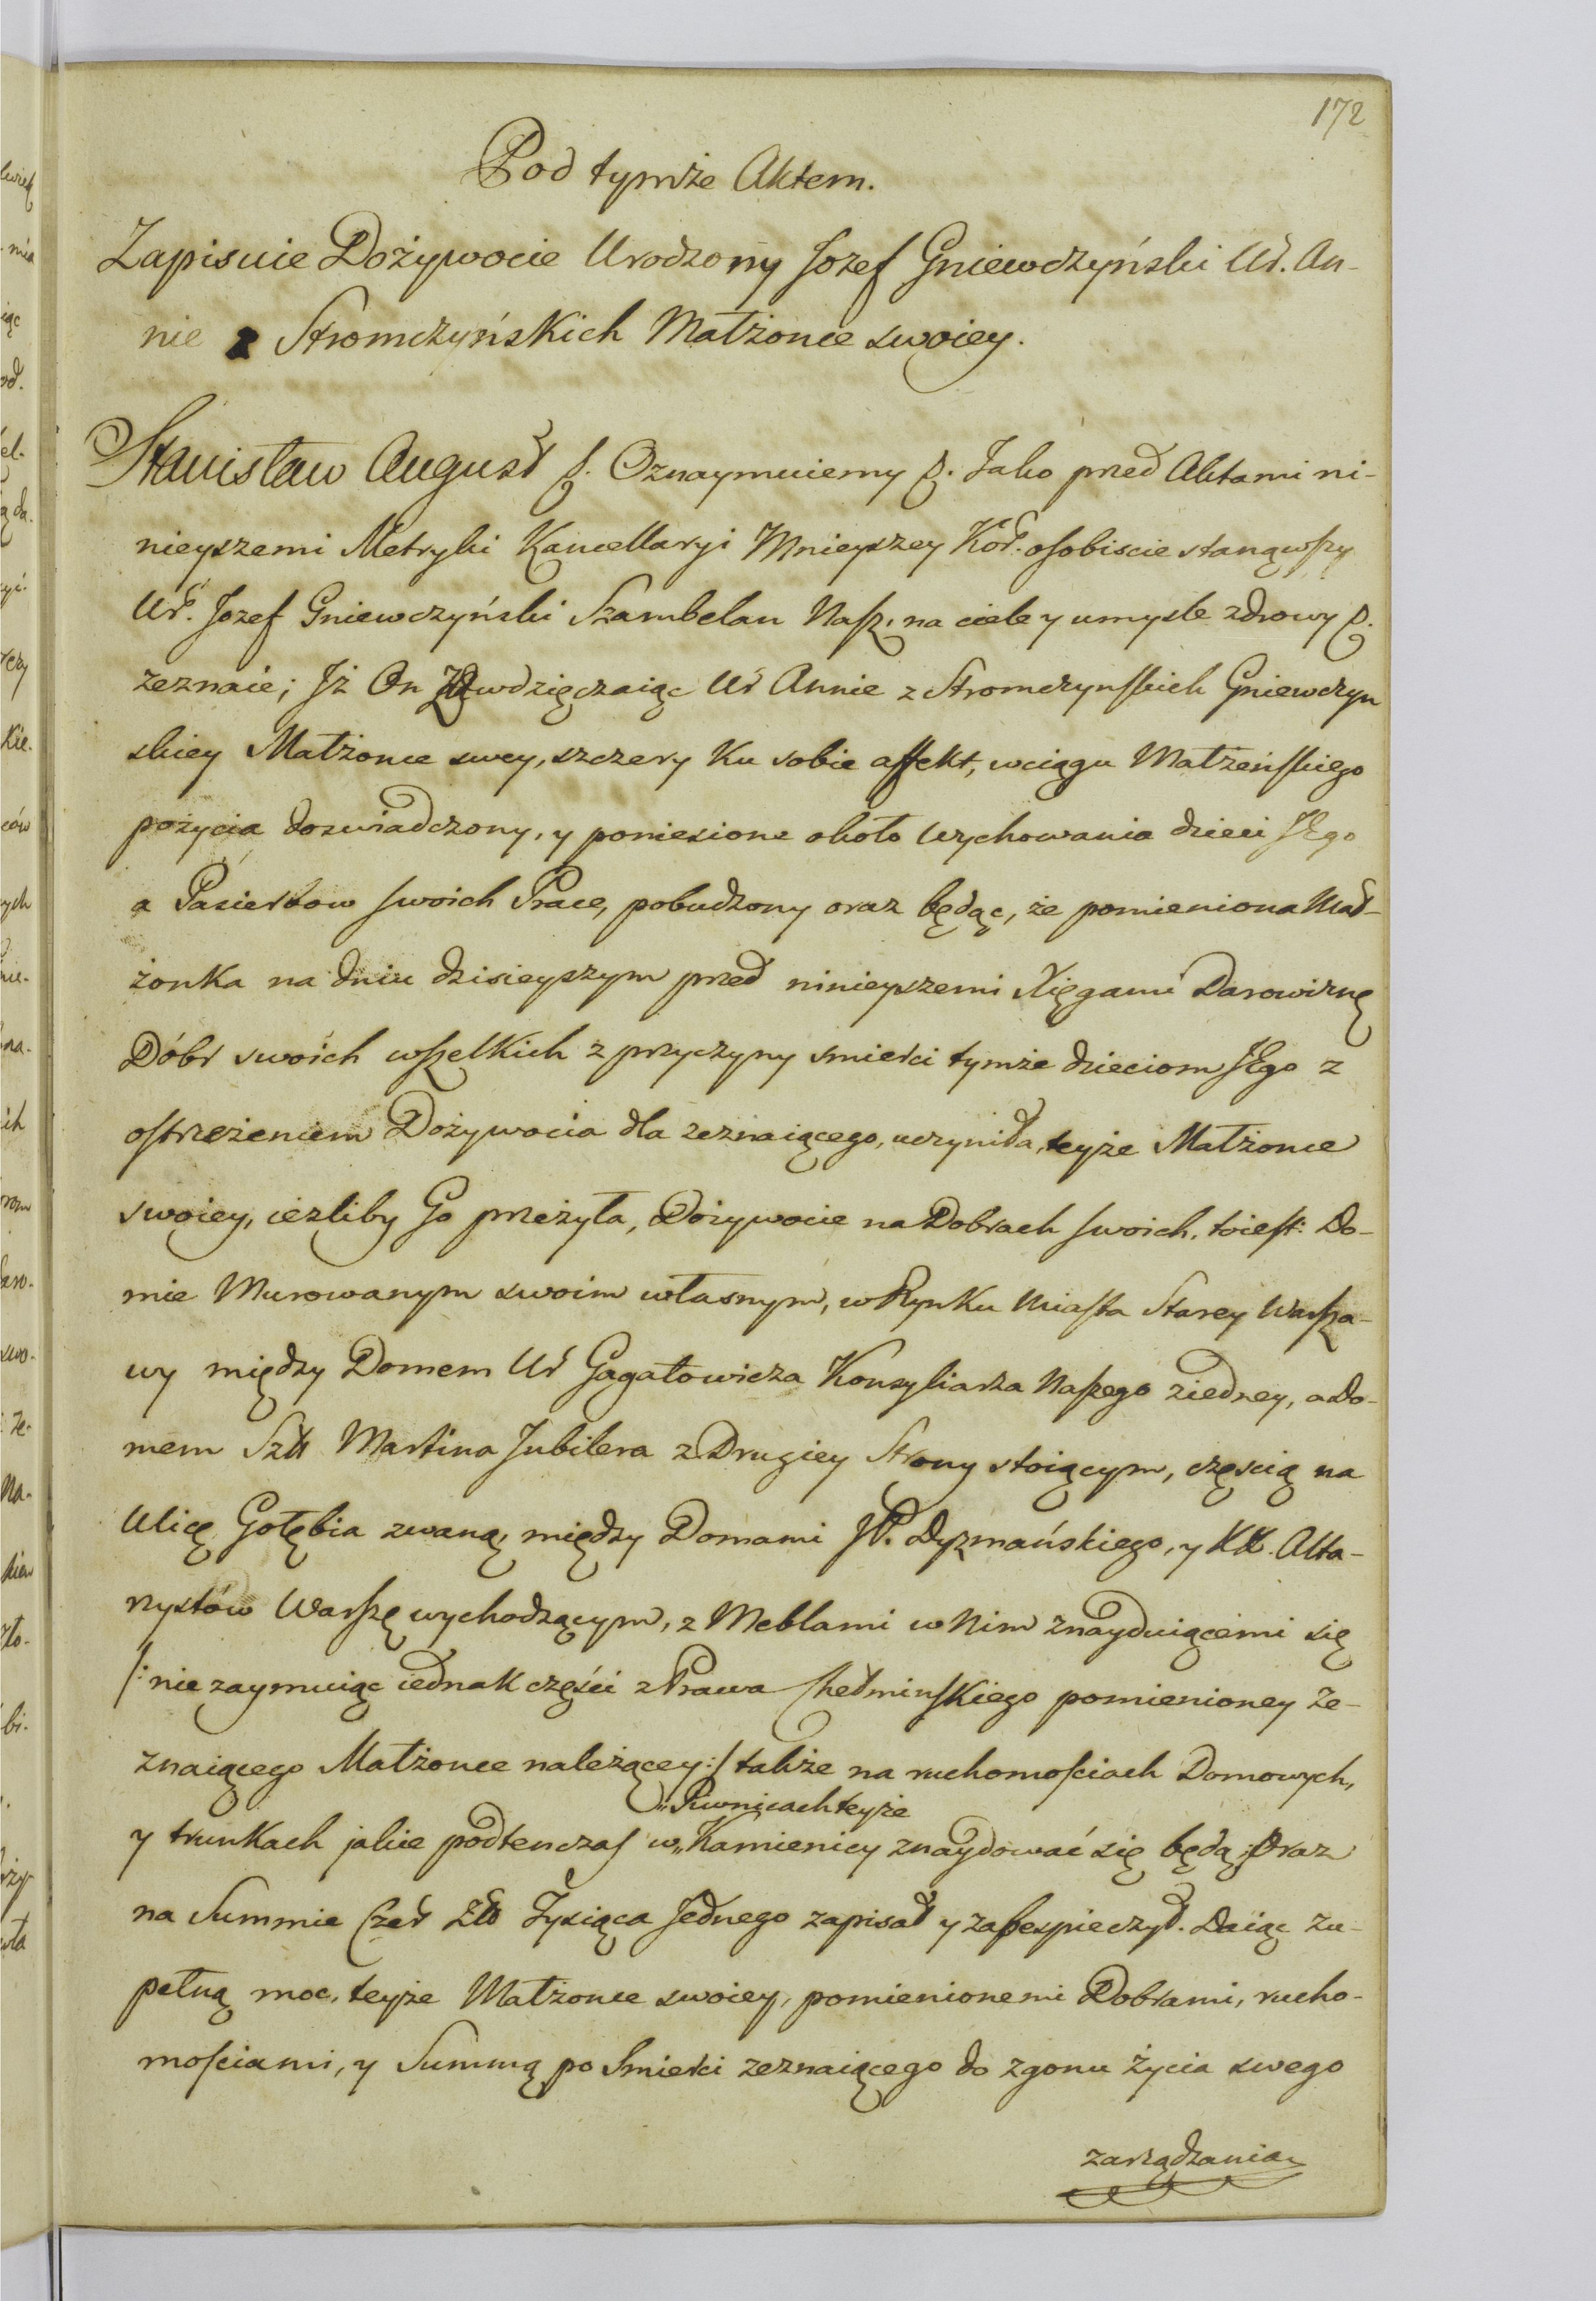 172
Pod tymże Aktem.
Zapisuie Dożywocie Urodzony Jozef Gniewczyński Ur. An-
nie z Stromczyńskich Małżonce swoiey.
Stanisław August p. Oznaymuiemy p. Jako przed Aktami ni-
nieyszemi Metryki Kancellaryi Mnieyszey Kor. osobiscie stanąwszy
Ur. Jozef Gniewczyński Szambelan Nasz, na ciele y umysle zdrowy p.
zeznaie; Iż On Zawdzięczaiąc Ur Annie z Stromczynskich Gniewczyn
skiey Małżonce swey, szczery Ku sobie affekt, wciągu Małżeńskiego
pożycia doswiadczony, y poniesione około Wychowania dzieci JEgo
a Pasierbow swoich Prace, pobudzony oraz będąc, że pomieniona Mał-
żonka na dniu dzisieyszym przed ninieyszemi Xięgami Darowiznę
Dóbr swoich wszelkich z przyczyny smierci tymże dzieciom JEgo z
ostrzeżeniem Dożywocia dla zeznaiącego, uczyniła, teyże Małżonce
swoiey, ieżliby Go przeżyła, Dożywocie na Dobrach swoich, toiest: Do-
mie Murowanym swoim własnym, w Rynku Miasta Starey Warsza-
wy między Domem Ur Gagatowicza Konsyliarza Naszego ziedney, a Do-
mem Szl Martina Jubilera z Drugiey Strony stoiącym, częscią na
Ulicę Gołębia zwaną, między Domami JP. Dyzmańskiego, y XX. Alta-
rystów Warszę wychodzącym, z Meblami w Nim znayduiącemi się
/: nie zaymuiąc iednak częsci z Prawa Chełminskiego pomienioney Ze-
znaiącego Małżonce należącey :/ także na ruchomosciach Domowych,
"Piwnicach teyże
y trunkach jakie podtenczas w" Kamienicy znaydować się będą; Oraz
na Summie Czer Zło Tysiąca Jednego zapisał y zabespieczył. Daiąc zu-
pełną moc, teyże Małżonce swoiey, pomienionemi Dobrami, rucho-
mosciami, y Summą po Smierci zeznaiącego do zgonu życia swego
zarządzania